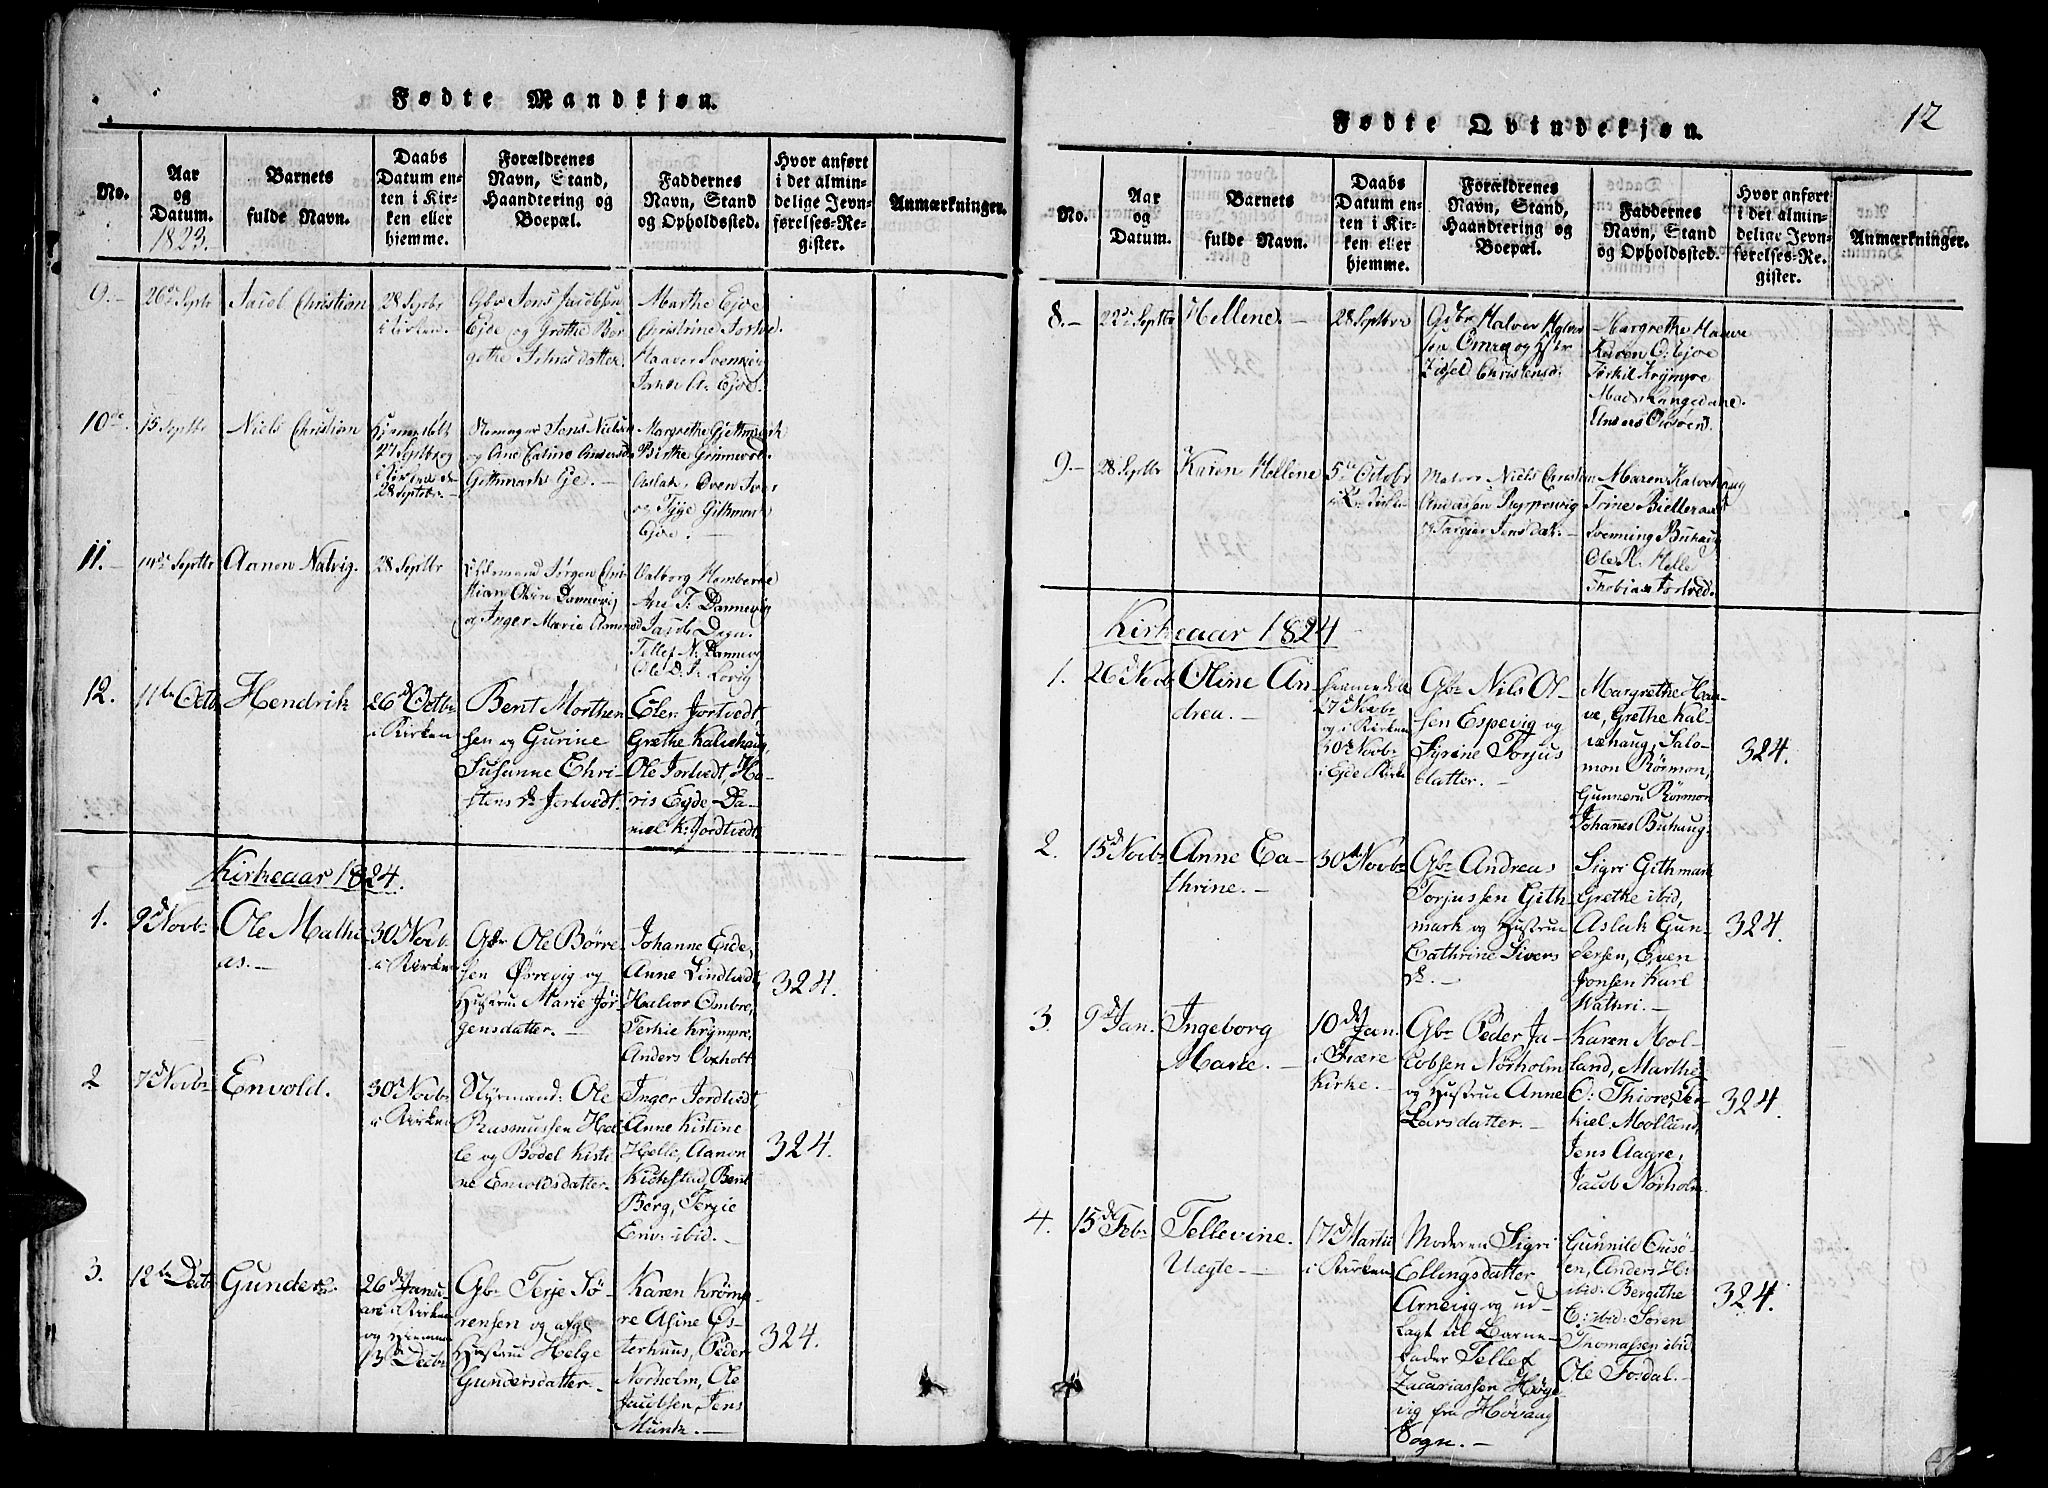 Fødte Mandkjøn.
No.
Aar
og
Datum.
1823.
Barnets
fulde Navn.
Daabs
Datum en-
ten i Kir-
ken eller
hjemme.
Forældrenes
Navn, Stand,
Haandtering og
Boepæl.
Faddernes
Navn, Stand
og Opholdssted.
Hvor anført
i det almin-
delige Jevn-
førelses-Re-
gister.
Anmærkninger.
9.-
26de Septbr
Jacob Christian
28 Septbr
i Kirken.-
Gbr Jens Jacobsen
Ejde og Grethe Bor-
gethe Johnsdatter.
Marthe Ejde
Christine
Haaver
10de
15 Septbr
Niels Christian
Hjemmedøbt
27 Septbr og
i Kirken den
28 Septbr.-
Jens Nielsen
og Ane
Margrethe Githmark
Birthe
Aslak
Ejde.-
11.-
14de Septbr
Aanon Natvig.
28 Septbr
Jørgen Chri-
stian Olsen Dannevig
og Inger Marie
Valborg
Ane T: Dannevig
Jacob Dagn.
Tellef N: Dannevig
12.
11te Octb.
Hendrik
26d Octbr
i Kirken
Bent Morthen-
sen og Gurine
Susanne Chri-
stens Dr Jortvedt.
Elen Jortvedt,
Grethe Kalvehaug,
Ole Jortvedt, Ha-
ris Eyde Da-
niel K: Jordtvedt
Kirkeaar 1824.
1.
9d Novbr
Ole Mathi-
as.-
30 Novbr
i Kirken
Gbr Ole Børre-
sen Østrevig og
Hustrue Marie Jør-
gensdatter.-
Johanne Eide,
Anne Lindtvedt,
Halvor Ombre,
Terkie Krympre,
Anders Oxholt
324.
2
7d Novbr
Envold.
30d Novbr
i Kirken
Styrmand: Ole
Rasmussen Hel-
le og Bodel Kisti-
ne Envoldsdatter.
Inger Jordtvedt
Anne Kistine
Helle, Aanon
Kichstad, Bent
Berg, Terjie
Env: ibid.-
324.
3.
12te Decbr
Gunder.
26de Janu-
ari i Kirken
og hiemme
13d Decbr
Gbr Terje Sø-
rensen og afg:
Hustrue Helge
Gundersdatter.-
Karen Krømp-
re Asine Øs-
terhuus, Peder
Norholm, Ole
Jacobsen, Jens
Munk.-
324.
Fødte Qvindekjøn.
12
No.
Aar
og
Datum.
Barnets
fulde Navn.
Daabs
Datum en-
ten i Kir-
ken eller
hjemme.
Forældrenes
Navn, Stand,
Haandtering og
Boepæl.
Faddernes
Navn, Stand
og Opholdssted.
Hvor anført
i det almin-
delige Jevn-
førelses-Re-
gister.
Anmærkninger.
8.-
22de Septbr
Hellene.-
28 Septbr
Gdbr Halvor Halvor-
sen Omre og Hstr
Zidsel Christensd:
Margrethe Haave
Karen O: Ejde
Terkil Krympre
Mads Langedahl.
9-
28 Septbr
Karen Hellene
5te Octobr
i Kirken
Matros Niels Christian
Anderssen
og Targier Jensdatt.-
Maren Kalvehaug
Trine Bielleraas
Svenning Buhaug
Ole R. Helle
Thobias Jortved.
Kirkeaar 1824
1.
26d Novb
Oline An-
drea.-
hiemmedøbt
27d Novbr
og i Kirken
30d Novbr
i Eyde Kirke
Gbr Nils Ol-
sen Espevig og
Syrine Torjus
datter.-
Margrethe Haa-
ve, Grethe Kal-
vehaug, Salo-
mon Rørmon,
Gunneru Rørmon,
Johannes Buhaug.
324.
2.
15d Novbr
Anne Ca-
thrine.-
30te Novbr
Gbr Andreas
Torjussen Gith-
mark og Hustrue
Cathrine Sivers
Dr.-
Sigri Githmark
Grethe ibid,
Aslak Gun-
dersen, Even
Jonsen Karl
Wathri.-
324.
3.
9d Jan.
Ingeborg
Marie.-
10de Jan.
i Fiære
Kirke.-
Gbr Peder Ja-
cobsen Nørholm
og Hustrue Anne
Larsdatter.-
Karen Mol-
land, Marthe
O: Thiore, Ter-
kiel Molland,
Jens Aagre,
Jacob Nørholm.
324.
4.
15de Febr
Tellevine.
Uægte.-
17d Martii
i Kirken
Moderen Sigri
Ellingsdatter
Arnevig og ud-
lagt til Barne-
fader Tellef
Zacariassen Høge-
vig fra Høvaag
Sogn.-
Gunnild Ousø-
en, Anders H:
ibid: Bergithe
E: ibid: Søren
Thomassen ibid
Ole Fosdal.-
324.